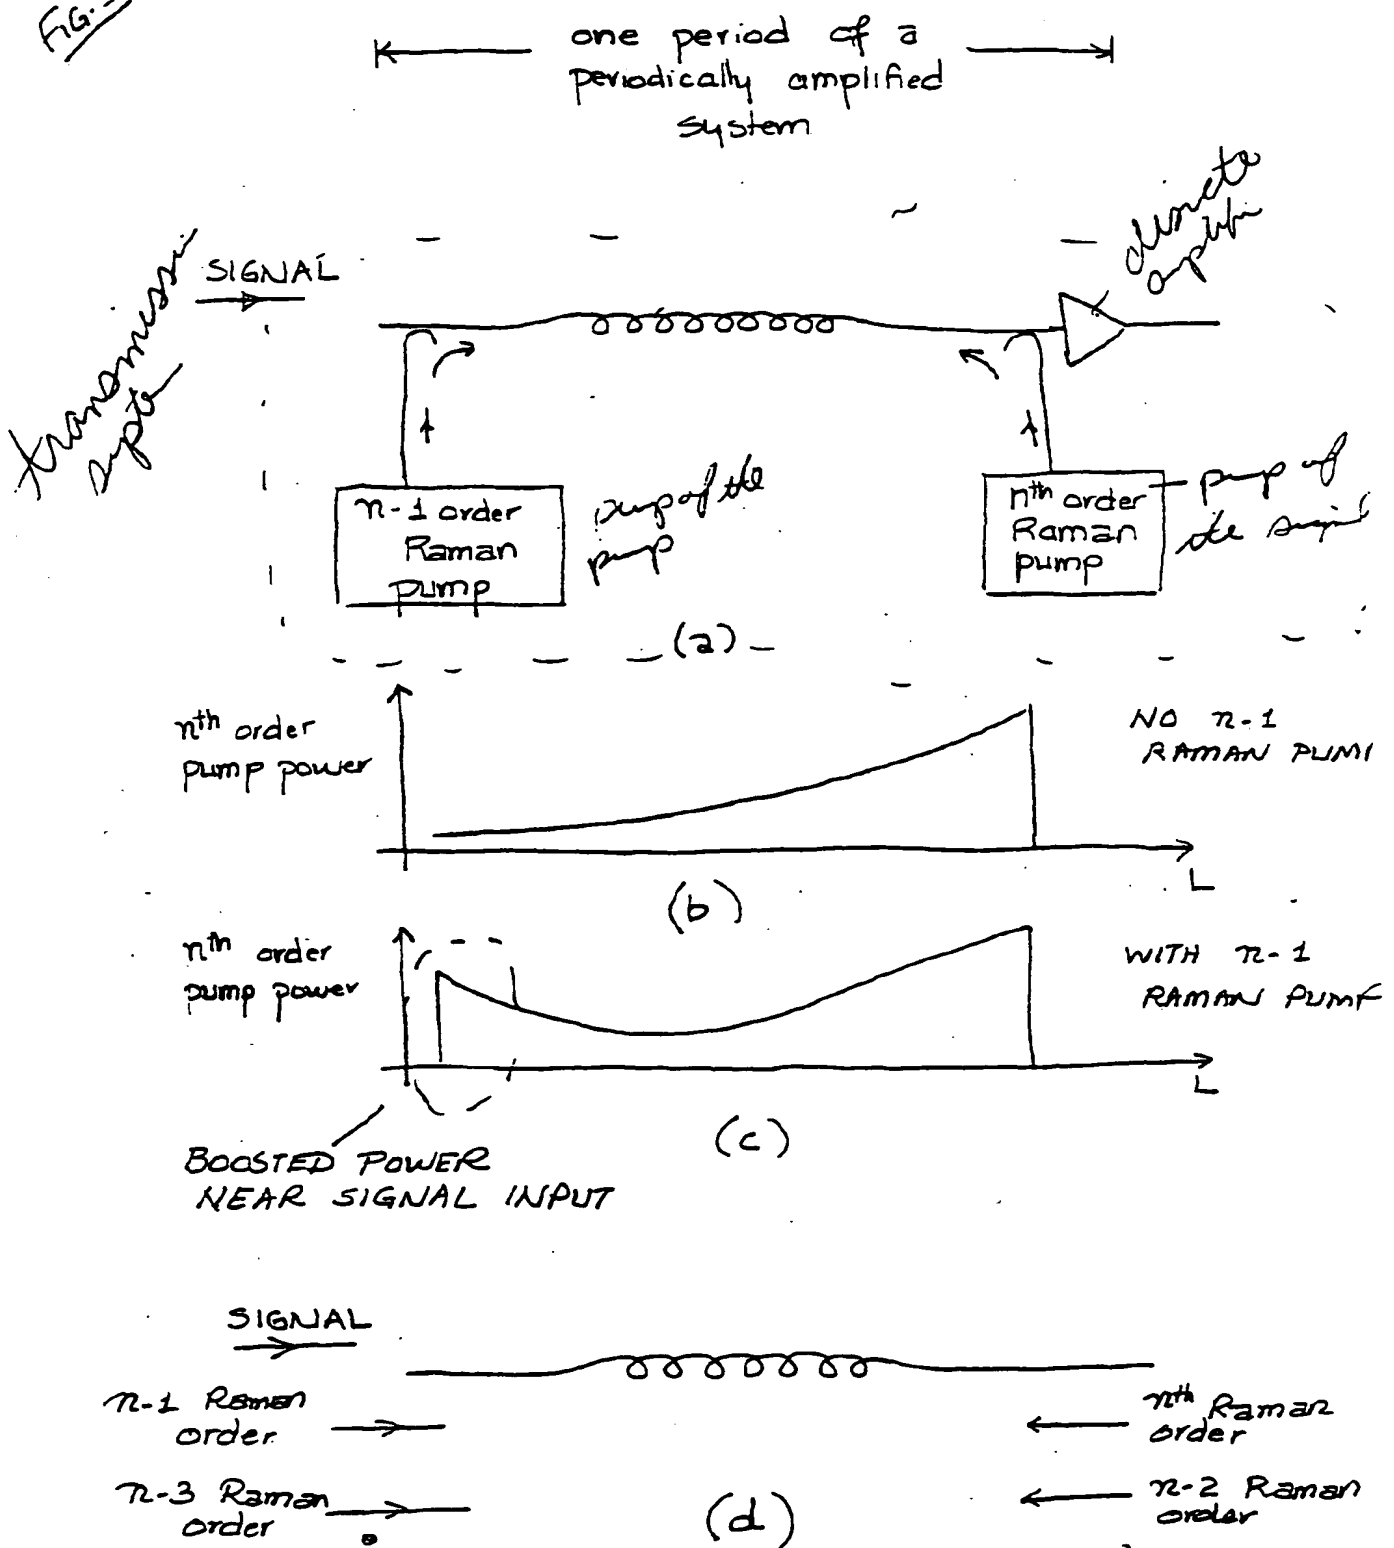 FIG.
one period of a
periodically amplified
system
discrete
SIGNAL
transmission
n-1 order
Raman
pump
pump of the
pump
nth order
Raman
pump
pump of
the signal
(a)
nth order
pump power
NO n-1
RAMAN PUM
L
(b)
nth order
pump power
WITH n-1
RAMAN PUMP
L
(c)
BOOSTED POWER
NEAR SIGNAL INPUT
SIGNAL
n-1 Raman
order
nth Raman
order
n-3 Raman
order
n-2 Raman
order
(d)